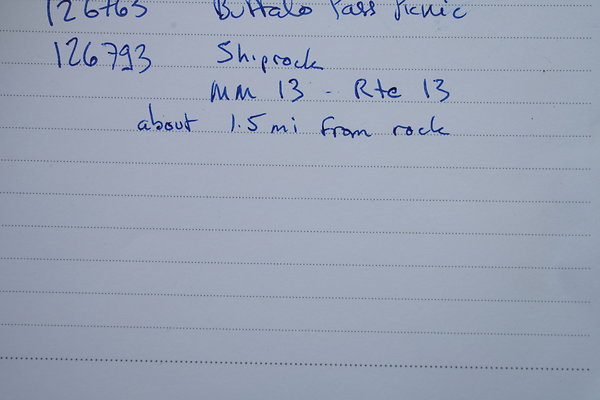 126763 Buffalo Pass Picnic
126793 Shiprock
MM 13 - Rte 13
about 1.5 mi from rock